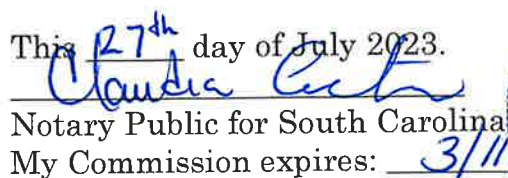 This 27th day of July 2023.
Claudia
Notary Public for South Carolina
My Commission expires: 3/11